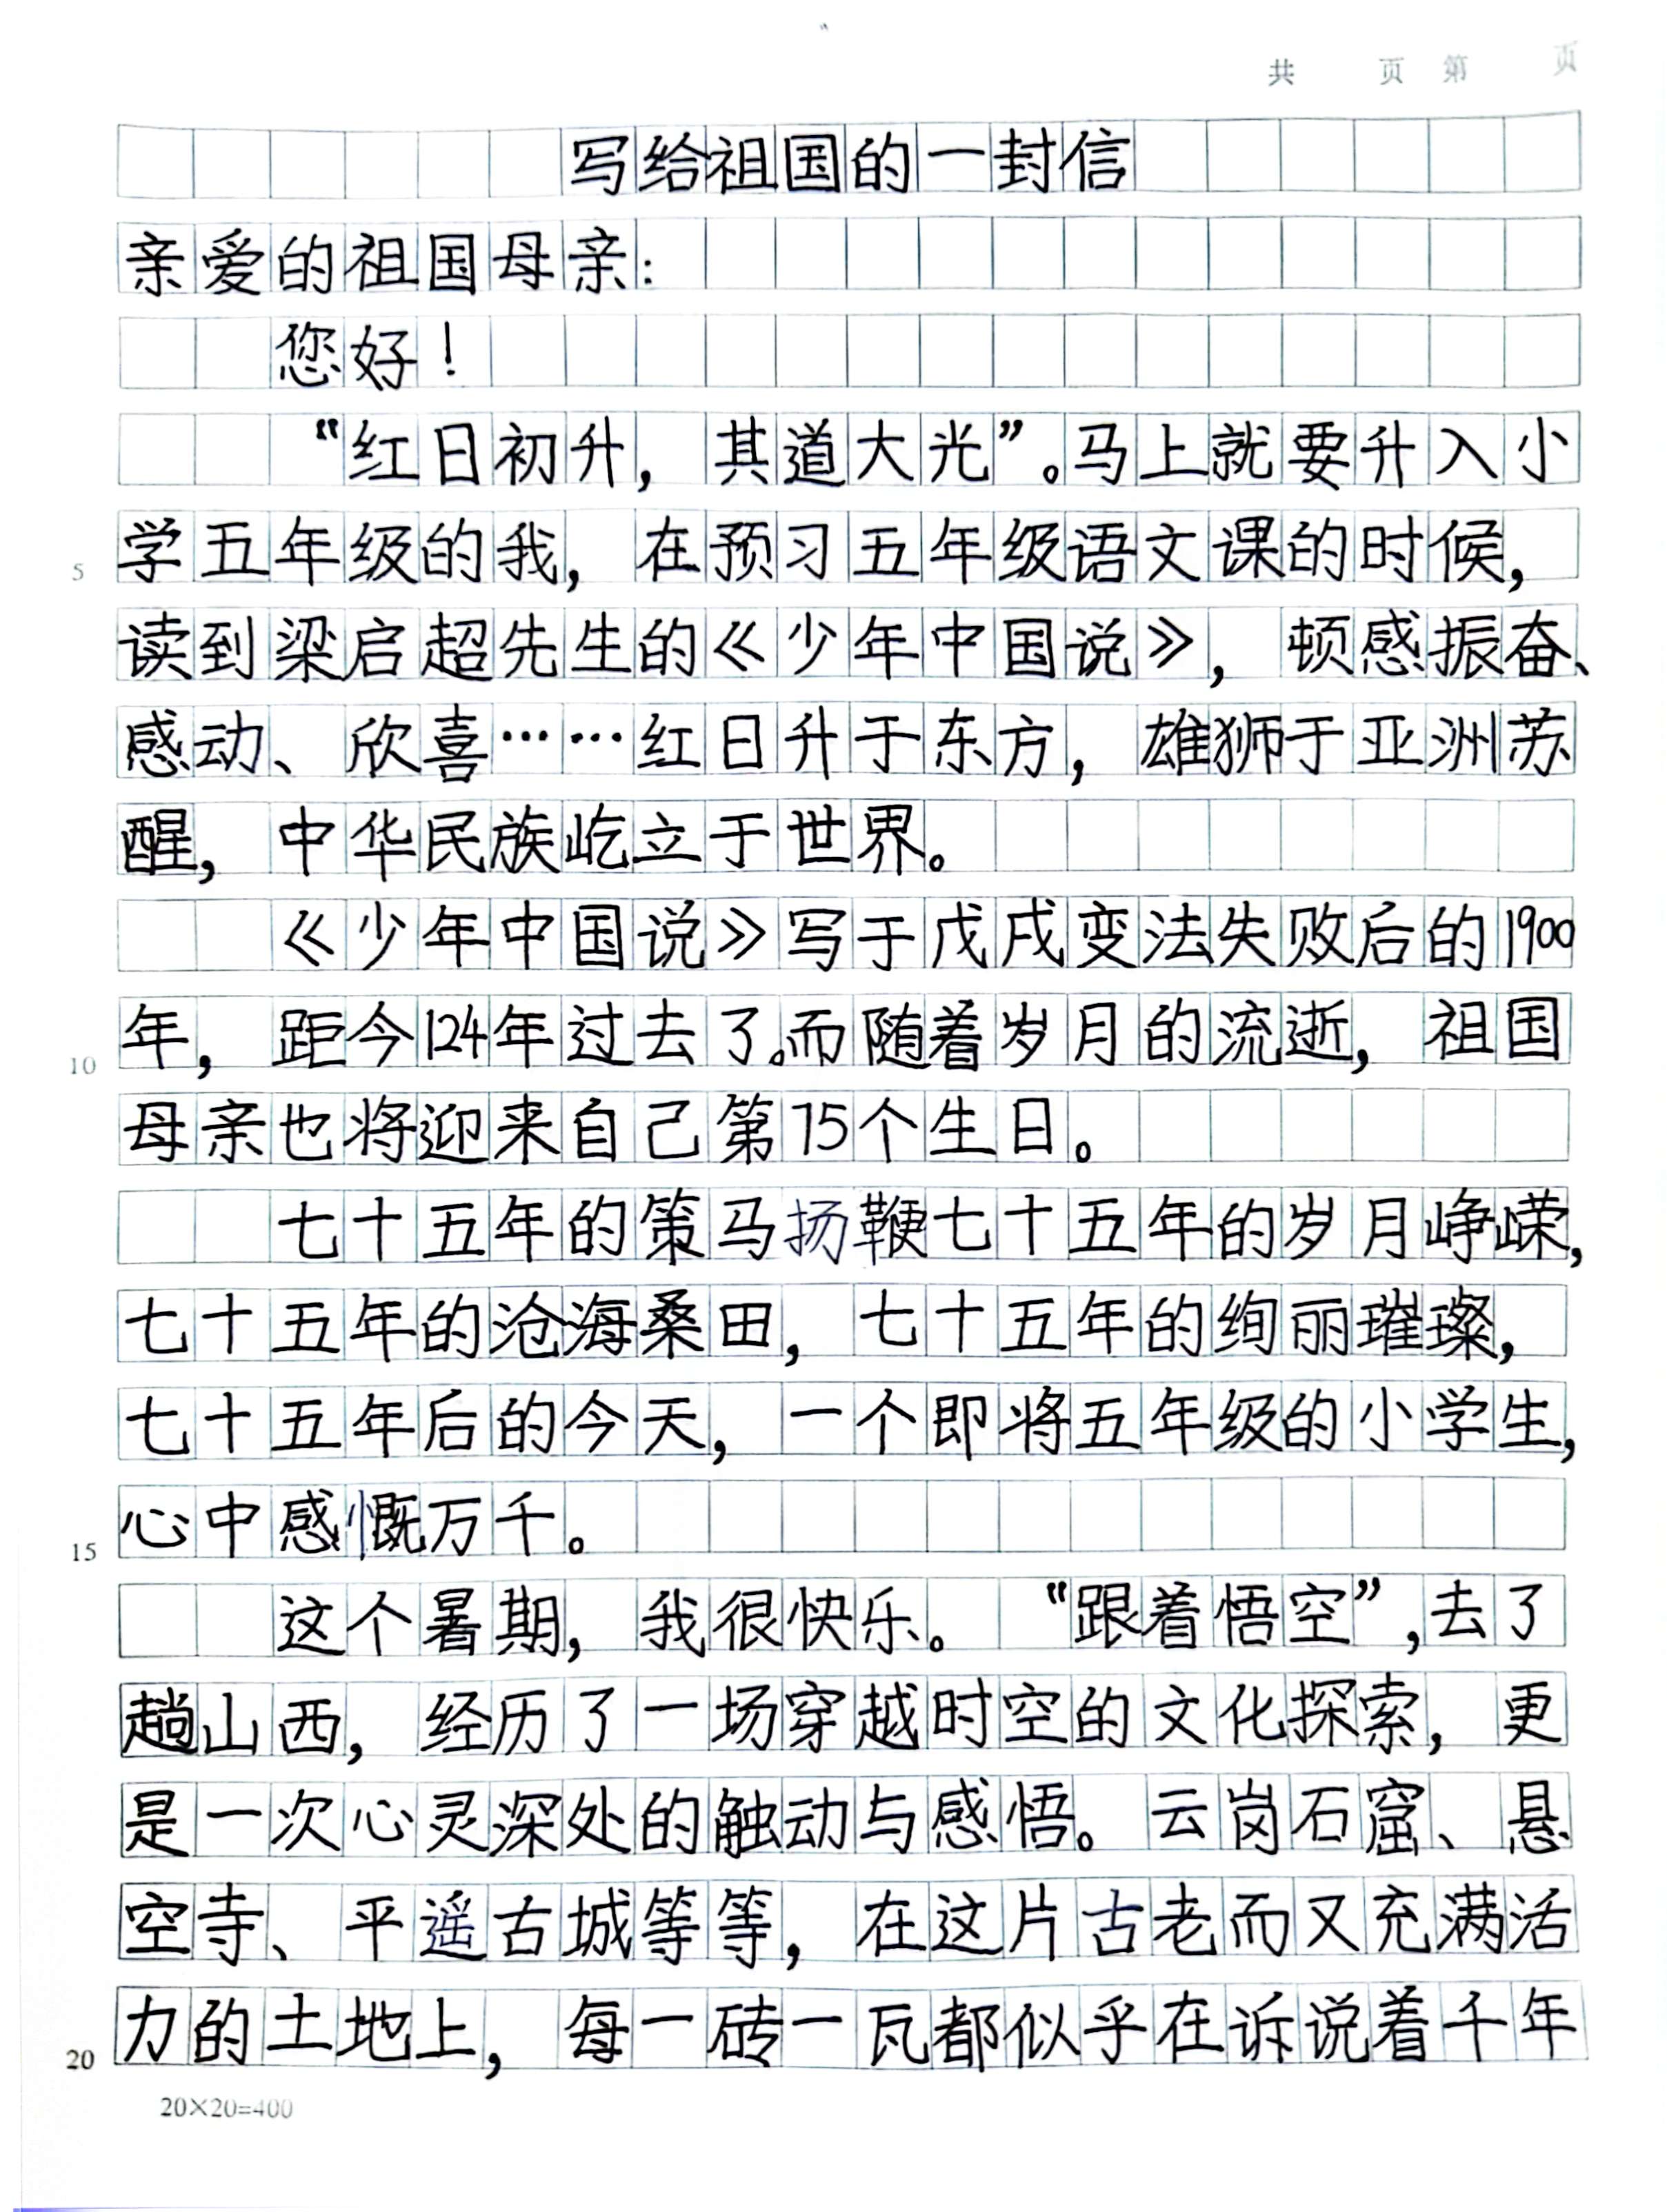 共 页 第 页
写给祖国的一封信
亲爱的祖国母亲：
您好！
“红日初升，其道大光”。马上就要升入小
学五年级的我，在预习五年级语文课的时候，
5
读到梁启超先生的《少年中国说》，顿感振奋、
感动、欣喜……红日升于东方，雄狮于亚洲苏
醒，中华民族屹立于世界。
《少年中国说》写于戊戌变法失败后的1900
年，距今124年过去了。而随着岁月的流逝，祖国
10
母亲也将迎来自己第75个生日。
七十五年的策马扬鞭七十五年的岁月峥嵘，
七十五年的沧海桑田，七十五年的绚丽璀璨，
七十五年后的今天，一个即将五年级的小学生，
心中感慨万千。
15
这个暑期，我很快乐。“跟着悟空”，去了
趟山西，经历了一场穿越时空的文化探索，更
是一次心灵深处的触动与感悟。云岗石窟、悬
空寺、平遥古城等等，在这片古老而又充满活
力的土地上，每一砖一瓦都似乎在诉说着千年
20
20×20=400